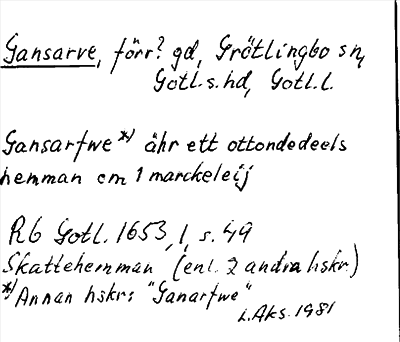 Gansarve, förr? gd, Grötlingbo sn,
Gotl.s.hd, Gotl.l.
Gansarfwe *) ähr ett ottondedeels
hemman om 1 marckeleij
Rb Gotl. 1653, 1, s. 49
Skattehemman (enl. 2 andra hskr)
*) Annan hskr: "Ganarfwe"
L.Aks. 1981